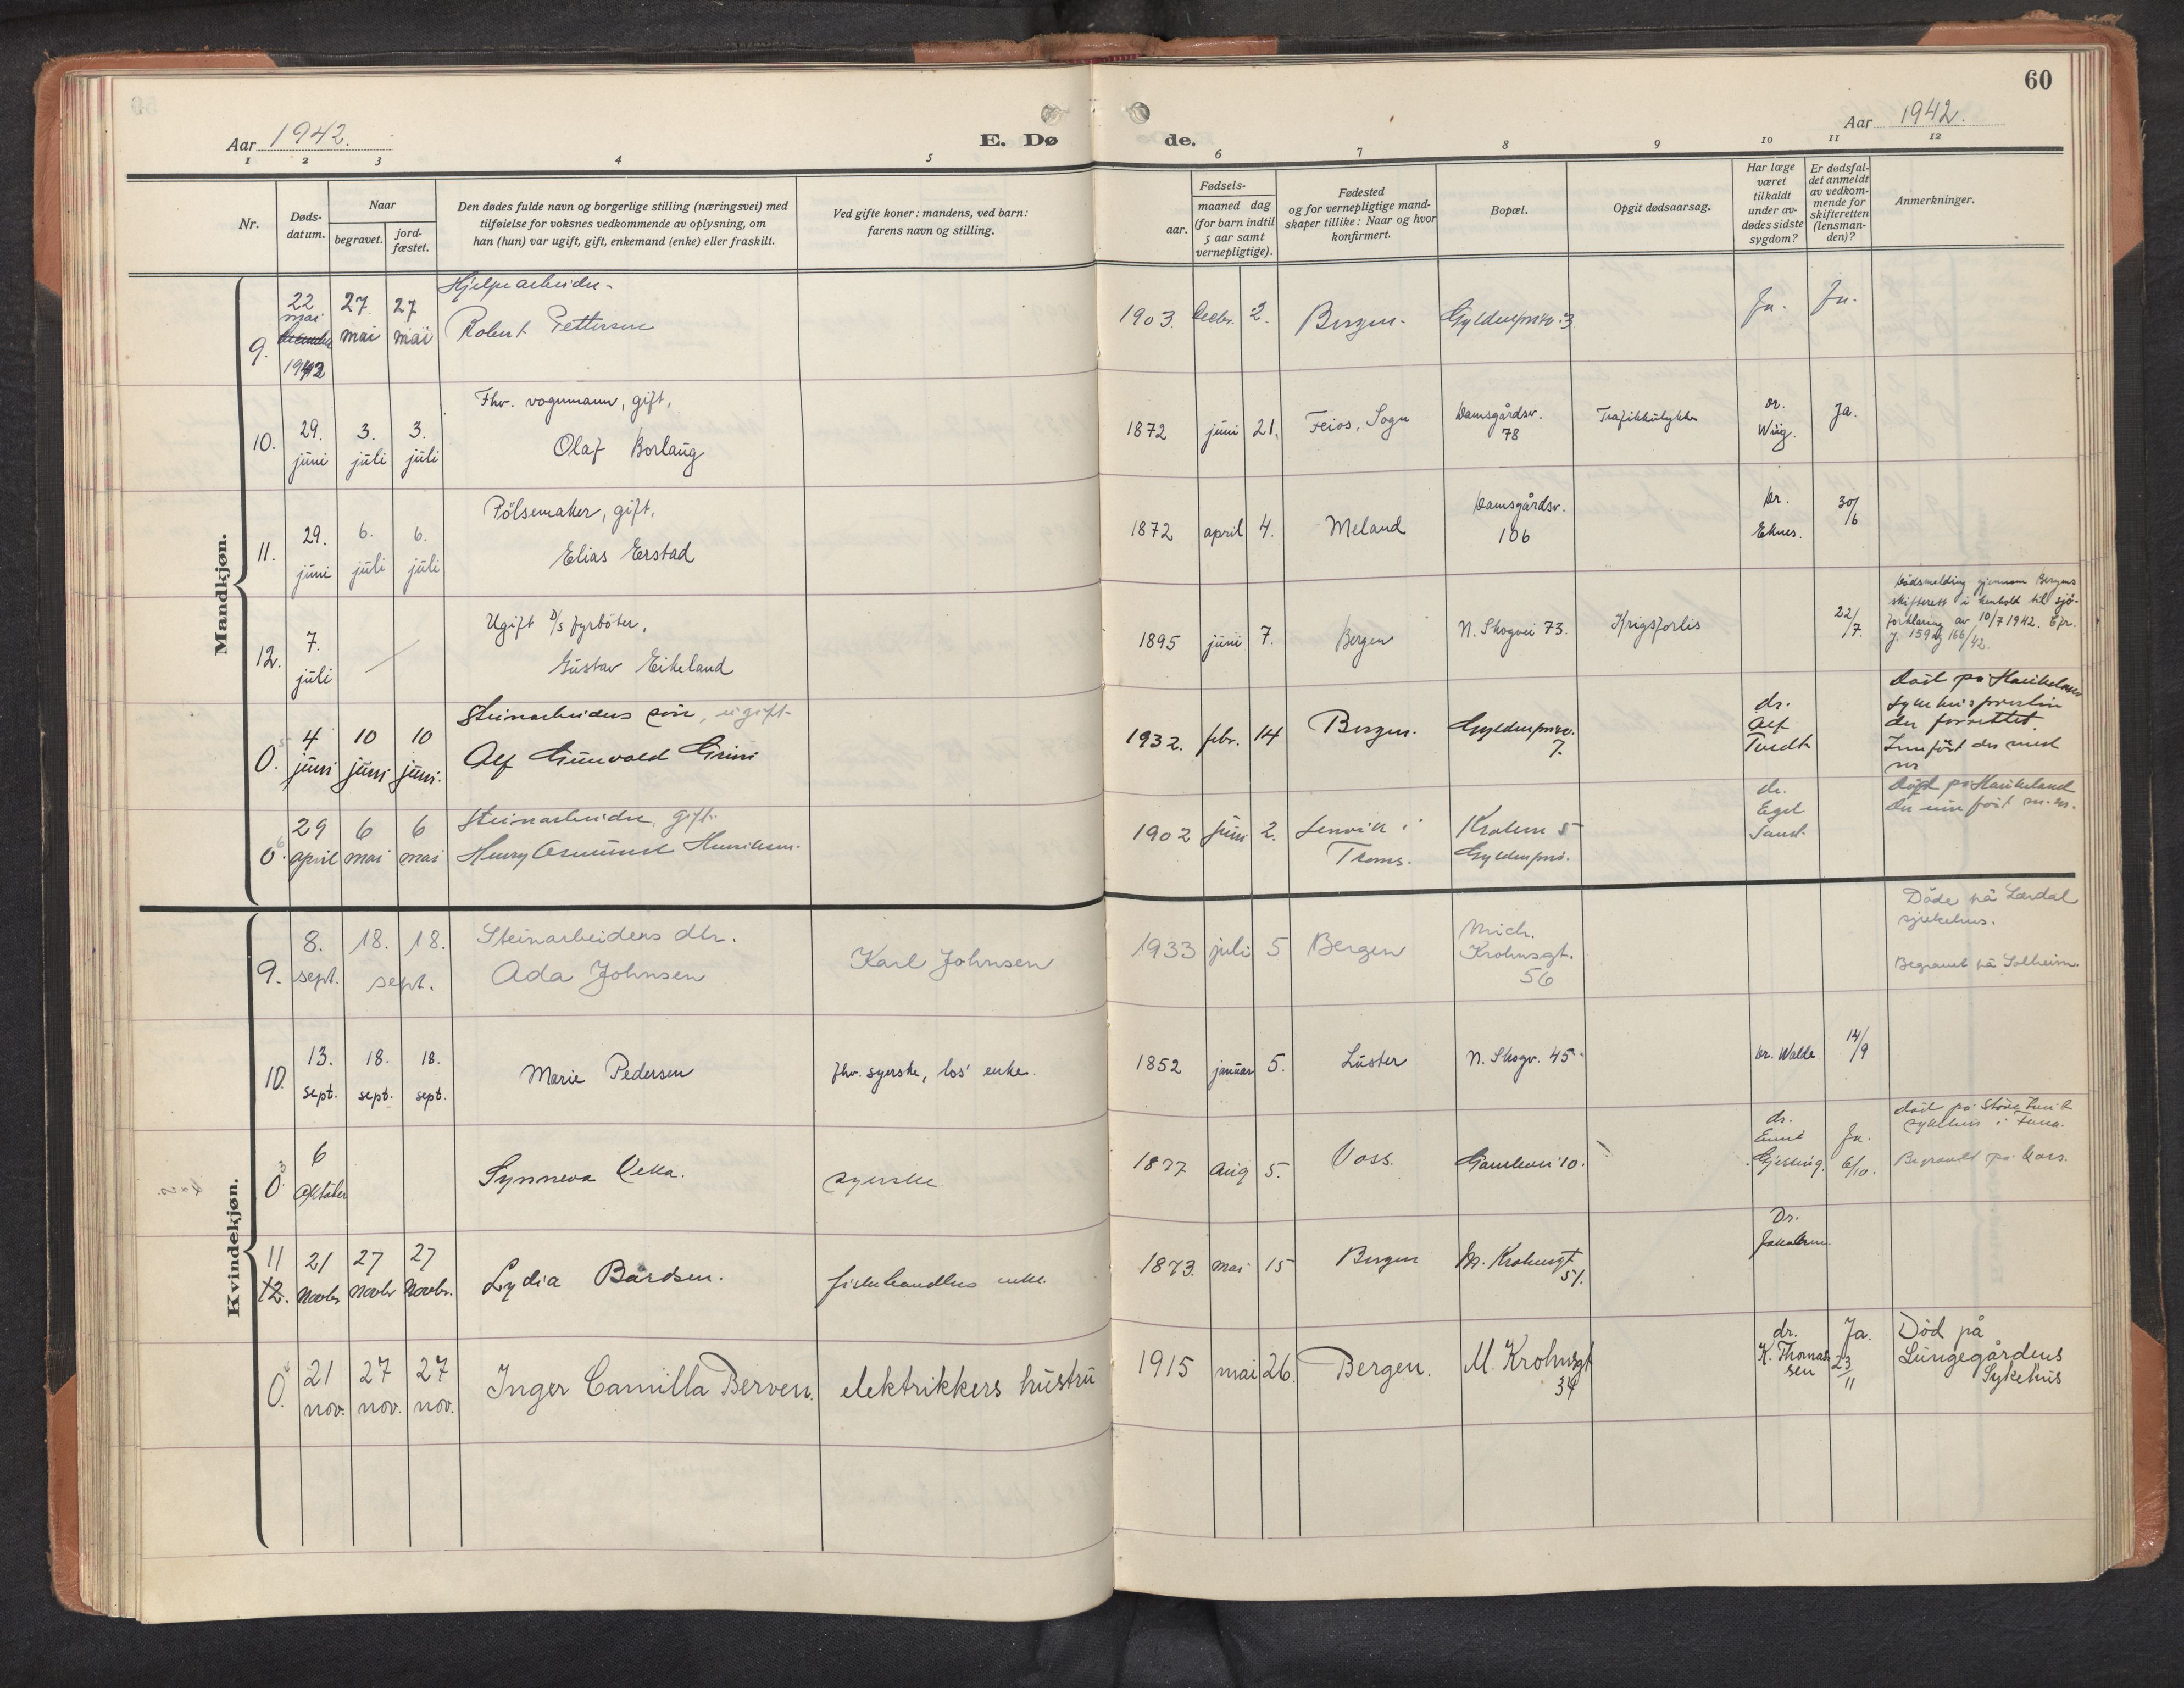 60
Aar 1942.
E. Dø
de.
Aar 1942.
1 2 3 4 5 6 7 8 9 10 11 12
Nr.
Døds-
datum.
Naar
begravet.
jord-
fæstet.
Den dødes fulde navn og borgerlige stilling (næringsvei) med
tilføielse for voksnes vedkommende av oplysning, om
han (hun) var ugift, gift, enkemand (enke) eller fraskilt.
Ved gifte koner: mandens, ved barn:
farens navn og stilling.
Fødsels-
aar.
maaned dag
(for barn indtil
5 aar samt
vernepligtige).
Fødested
og for vernepligtige mand-
skaper tillike: Naar og hvor
konfirmert.
Bopæl.
Opgit dødsaarsag.
Har læge
været
tilkaldt
under av-
dødes sidste
sygdom?
Er dødsfal-
det anmeldt
av vedkom-
mende for
skifteretten
(lensman-
den)?
Anmerkninger.
Mandkjøn.
9.
22
mai
1942
27
mai
27
mai
Hjelpearbeider
Robert Pettersen
1903. Decbr. 2.
Bergen.
Gyldenprisv. 3
Ja.
Ja.
10.
29.
juni
3.
juli
3.
juli
Fhv. vognmann, gift,
Olaf Borlaug
1872 juni 21.
Feios, Sogn
Damsgårdsv.
78
Trafikkulykke
Dr.
Wiig.
Ja.
11.
29.
juni
6.
juli
6.
juli
Pölsemaker, gift,
Elias Erstad
1872 april 4.
Meland
Damsgårdsv.
106
Dr.
Eknes.
30/6
12.
7.
juli
Ugift D/S fyrböter,
Gustav Eikeland
1895 juni 7.
Bergen
N. Skogvei 73.
Krigsforlis
22/7.
Dödsmelding gjennom Bergens
skifterett i henhold til sjö-
forklaring av 10/7 1942. Efr.
j. 159 og 166/42.
0.
5
4
juni
10
juni
10
juni.
Steinarbeiders sön, ugift
Alf Gunvald Grini
1932. febr. 14
Bergen.
Gyldenprisv.
7.
dr.
Alf
Tvedt
Död på Haukeland
Sykehuspresten
der forrettet.
Innfört der med
nr
0.
6
29
april
6
mai
6
mai
Steinarbeider, gift.
Henry Asmund Henriksen.
1902 Juni 2.
Lenvik i
Troms.
Krohnv 5
Gyldenpris.
dr.
Egil
Sand.
Död på Haukeland
Kvindekjøn.
9.
8.
sept.
18. 18.
sept.
Steinarbeiders dtr.
Ada Johnsen
Karl Johnsen
1933 juli 5
Bergen
Mich.
Krohnsgt.
56
Döde på Lærdal
sjukehus.
Begravet på Solheim.
10.
13.
sept.
18.
sept.
18.
sept.
Marie Pedersen
fhv. syerske, los' enke.
1852 januar 5.
Luster
N. Skogv. 45
Dr. Walde
14/9
0.
3
6
Oktober
Synneva Veka.
syerske
1877 Aug 5.
Voss.
10.
dr.
Gjessing.
Ja.
6/10.
Död på Store
sykehus i Fana.
Begravet på Voss.
11
12.
21
Novbr
27
Novbr
27
Novbr.
Lydia Bårdsen.
fiskehandlers enke.
1873. mai 15
Bergen
M. Krohnsgt.
51.
Dr.
Jakobsen
0.
21
nov.
27
nov.
27
nov.
Inger Camilla Berven.
elektrikkers hustru
1915 mai 26.
Bergen.
M. Krohnsgt
34
dr.
K. Thomas
sen
Ja.
23/11
Död på
Lungegårdens
Sykehus